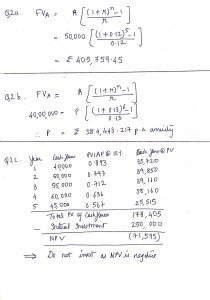 Q2a. FVA = A [ (1+r)^n - 1 / r ]
= 50,000 [ (1+0.12)^6 - 1 / 0.12 ]
= £ 405,759.45
Q2b. FVA = A [ (1+r)^n - 1 / r ]
40,00,000 = P [ (1+0.13)^ - 1 / 0.13 ]
∴ P = £ 384,473.217 p.a annuity
Q2c. Year Cash flow PVIAF @ Cash flow @ PV
1 40,000 0.893 35,720
2 50,000 0.797 39,850
3 55,000 0.712 39,160
4 60,000 0.636 38,160
5 45,000 0.567 25,515
Total PV of Cash flows 178,405
- Initial Investment 250,000
NPV (71,595)
⇒ Do not invest as NPV is negative